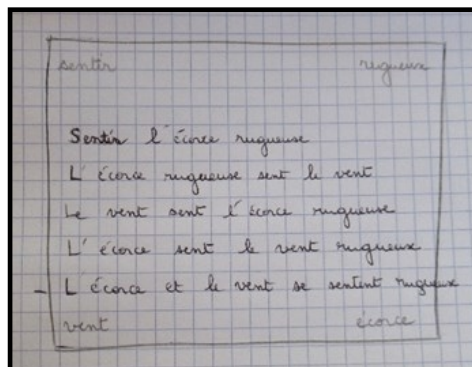 sentir rugueux
Sentir l'écorce rugueuse
L'écorce rugueuse sent le vent
Le vent sent l'écorce rugueuse
L'écorce sent le vent rugueux
- L écorce et le vent se sentent rugueux
vent écorce